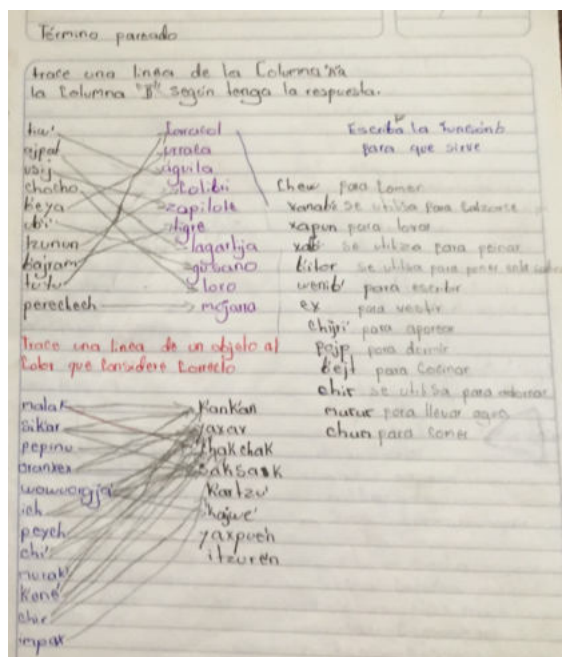 Término pareado
trace una linea de la Columna "A" a
la Columna "B" según tenga la respuesta.
ajpat
usij
chocho
beya
tzunun
bajram
tutu
pereclech
Caracol
urraca
águila
Colibri
zapilote
tigre
lagartija
gusano
loro
mojarra
Escriba la función
para que sirve
Chew para Comer
xanab' se utiliza para Calzarse
xapun para lavar
xab' se utiliza para peinar
se utiliza para poner
wenib' para escribir
ex para vestir
chijri' para aporear
pojp para dormir
bejt para Cocinar
chir se utiliza para
mutur para llevar agua
chun para Comer
Trace una linea de un objeto al
Color que Considere Correcto
malak
sikar
pepinu
oranxex
ich
peych
chi'
murak'
Kene'
chir
impar
Kankan
yaxax
chakchak
saksask
Kartzu'
kajwe'
yaxpueh
itzuren